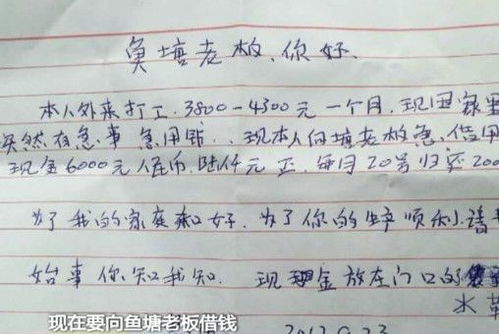 鱼塘老板、你好、
本人外来打工、3800－4300元一个月、现因家里
突然有急事 急用钱、、现本人向塘老板急、借用
现金6000元人民币、陆仟元正、每月20号归客200
为了我的家庭和好、为了你的生产顺利、请
始事你知我知、现现金放在门口的
现在要向鱼塘老板借钱